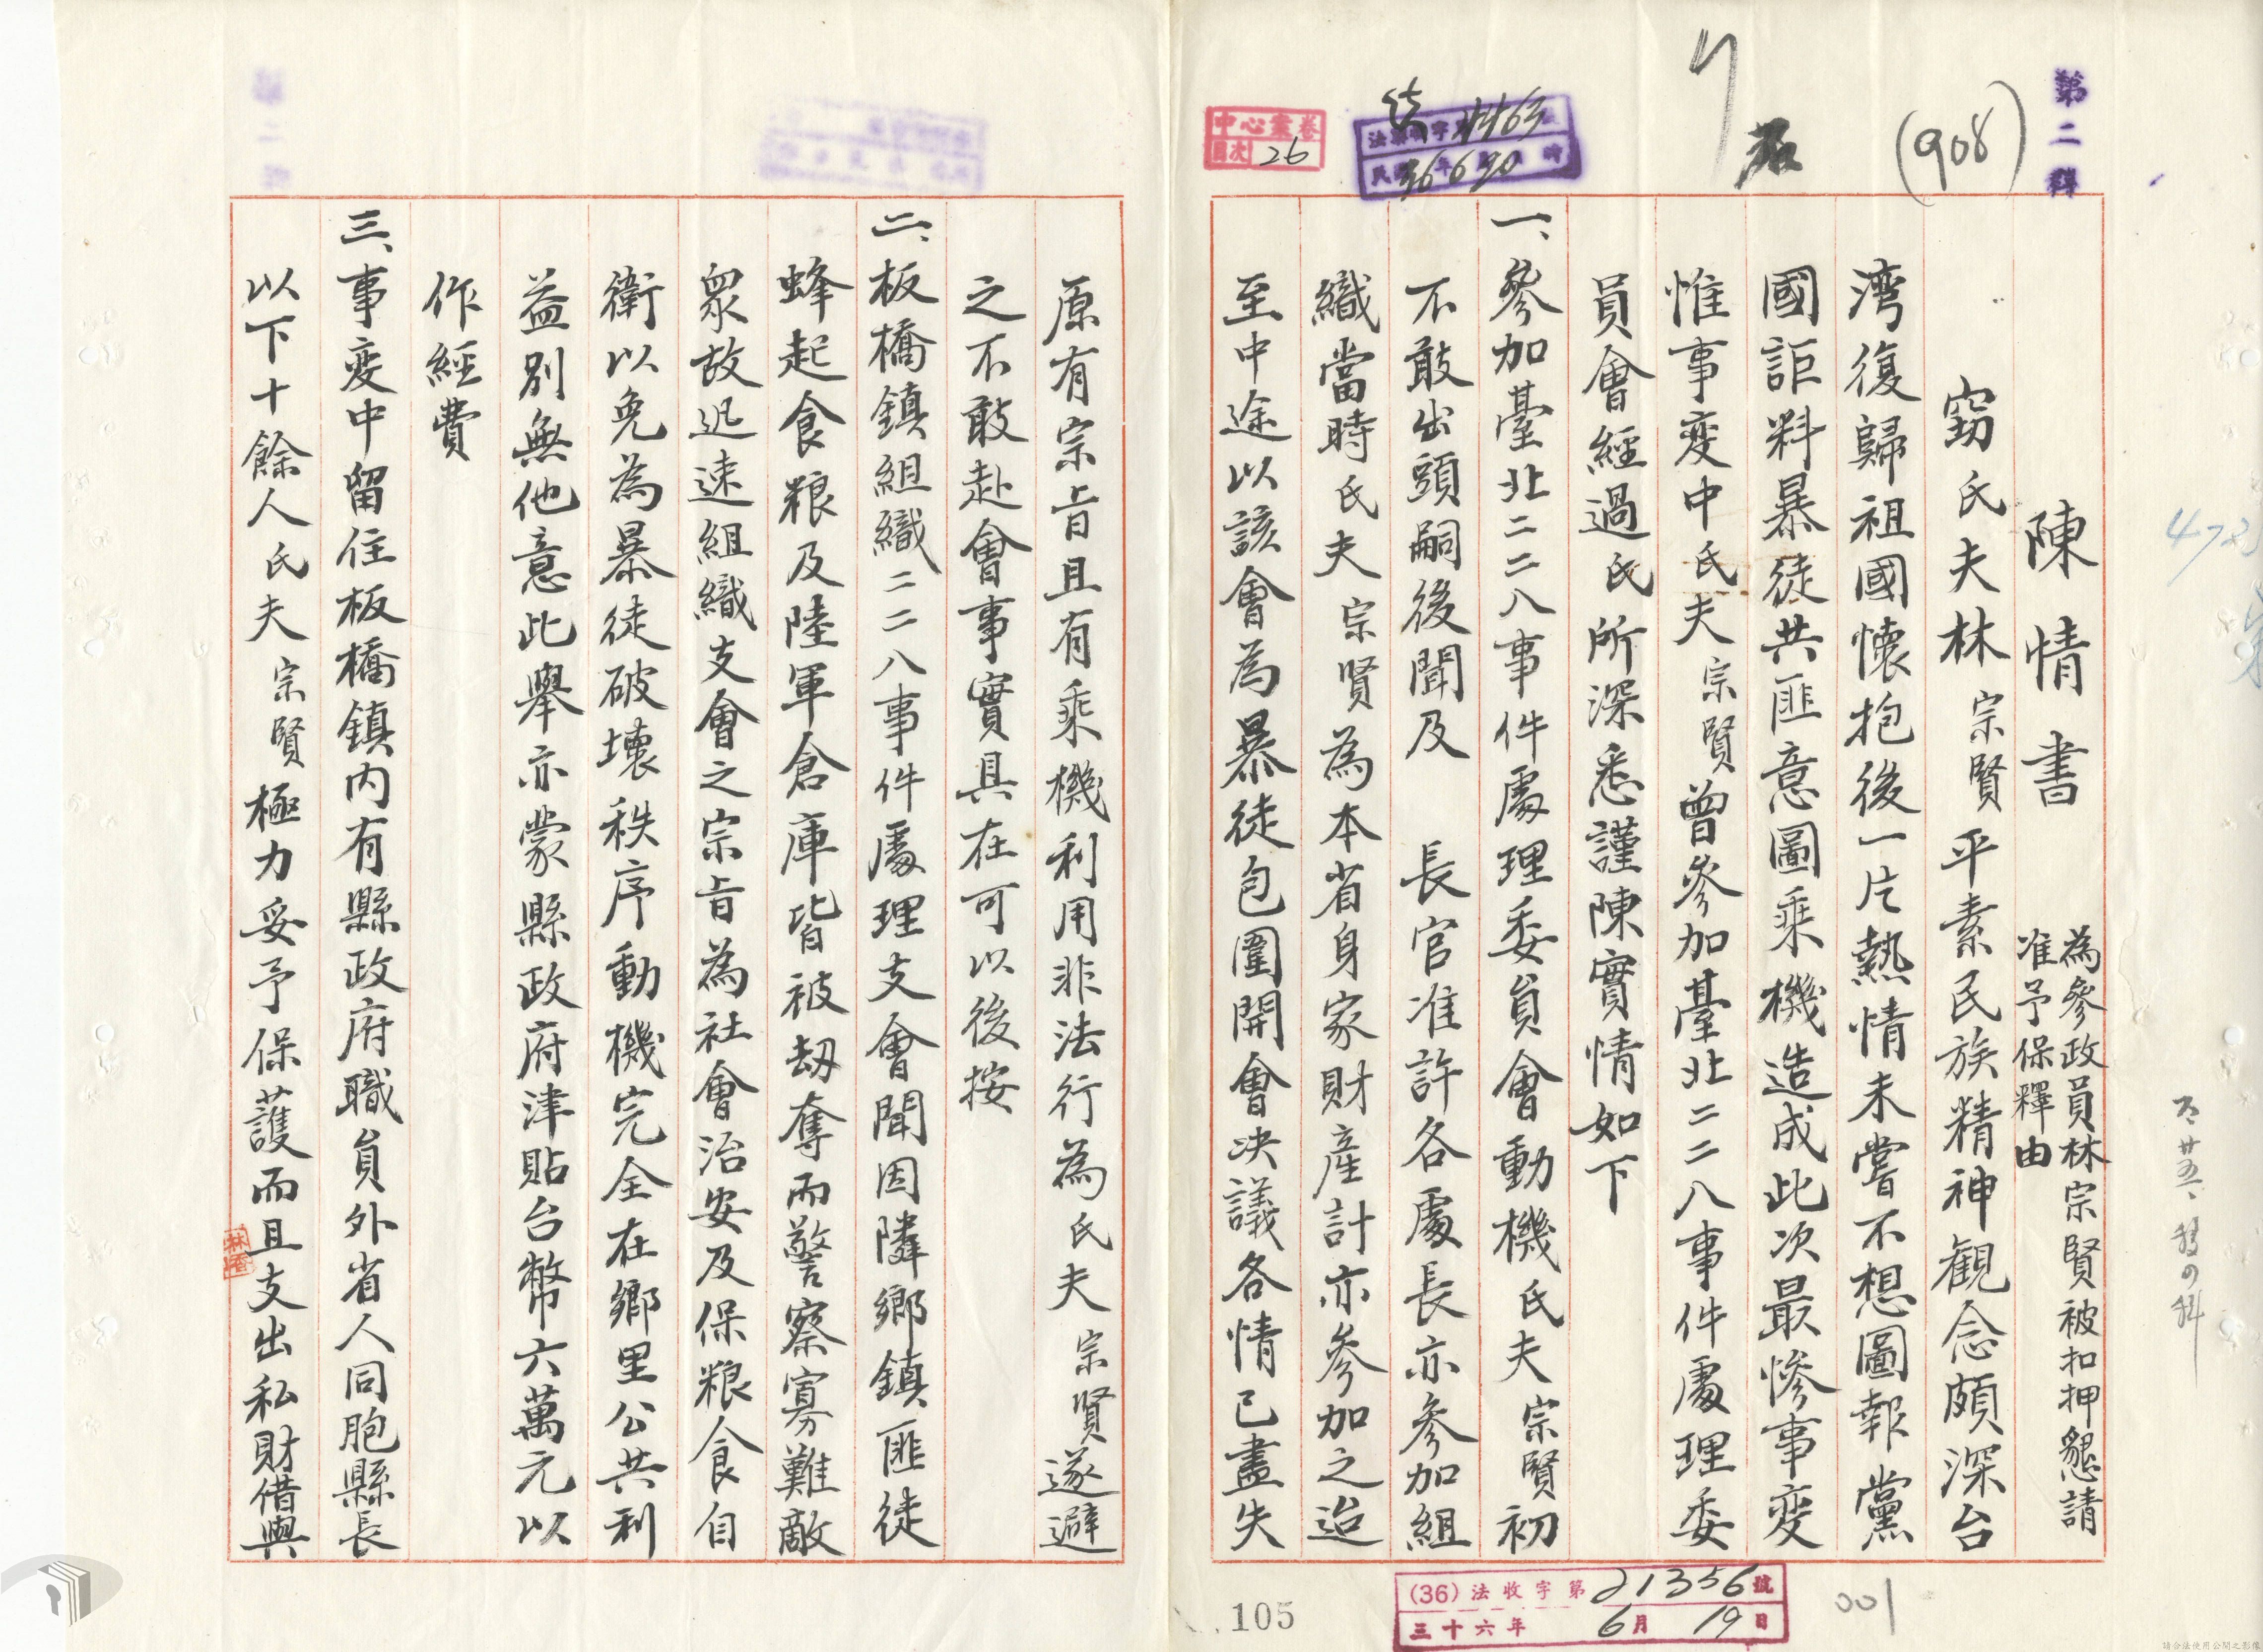 第二科
(908)
法 字 4463
民國36年6月20日 時
中心案卷
目次 26
陳情書
為參政員林宗賢被扣押懇請
准予保釋由
竊氏夫林宗賢平素民族精神觀念頗深台
湾復歸祖國懷抱後一片熱情未嘗不想圖報黨
國詎料暴徒共匪意圖乘機造成此次最慘事变
惟事变中氏夫宗賢曾參加臺北二二八事件處理委
員會經過氏所深悉謹陳實情如下
一、參加臺北二二八事件處理委員會動機氏夫宗賢初
不敢出頭嗣後聞及 長官准許各處長亦參加組
織當時氏夫宗賢為本省身家財產計亦參加之迨
至中途以該會為暴徒包圍開會决議各情已盡失
原有宗旨且有乘機利用非法行為氏夫宗賢遂避
之不敢赴會事實具在可以後按
二、板橋鎮組織二二八事件處理支會聞因隣鄉鎮匪徒
蜂起食粮及陸軍倉庫皆被刼奪而警察寡難敵
眾故迅速組織支會之宗旨為社會治安及保粮食自
衛以免為暴徒破壞秩序動機完全在鄉里公共利
益別無他意此舉亦蒙縣政府津貼台幣六萬元以
作經費
三、事变中留住板橋鎮内有縣政府職員外省人同胞縣長
以下十餘人氏夫宗賢極力妥予保護而且支出私財借與
(36)法收字第21356號
三十六年6月19日
105
001
請合法使用公開之影像